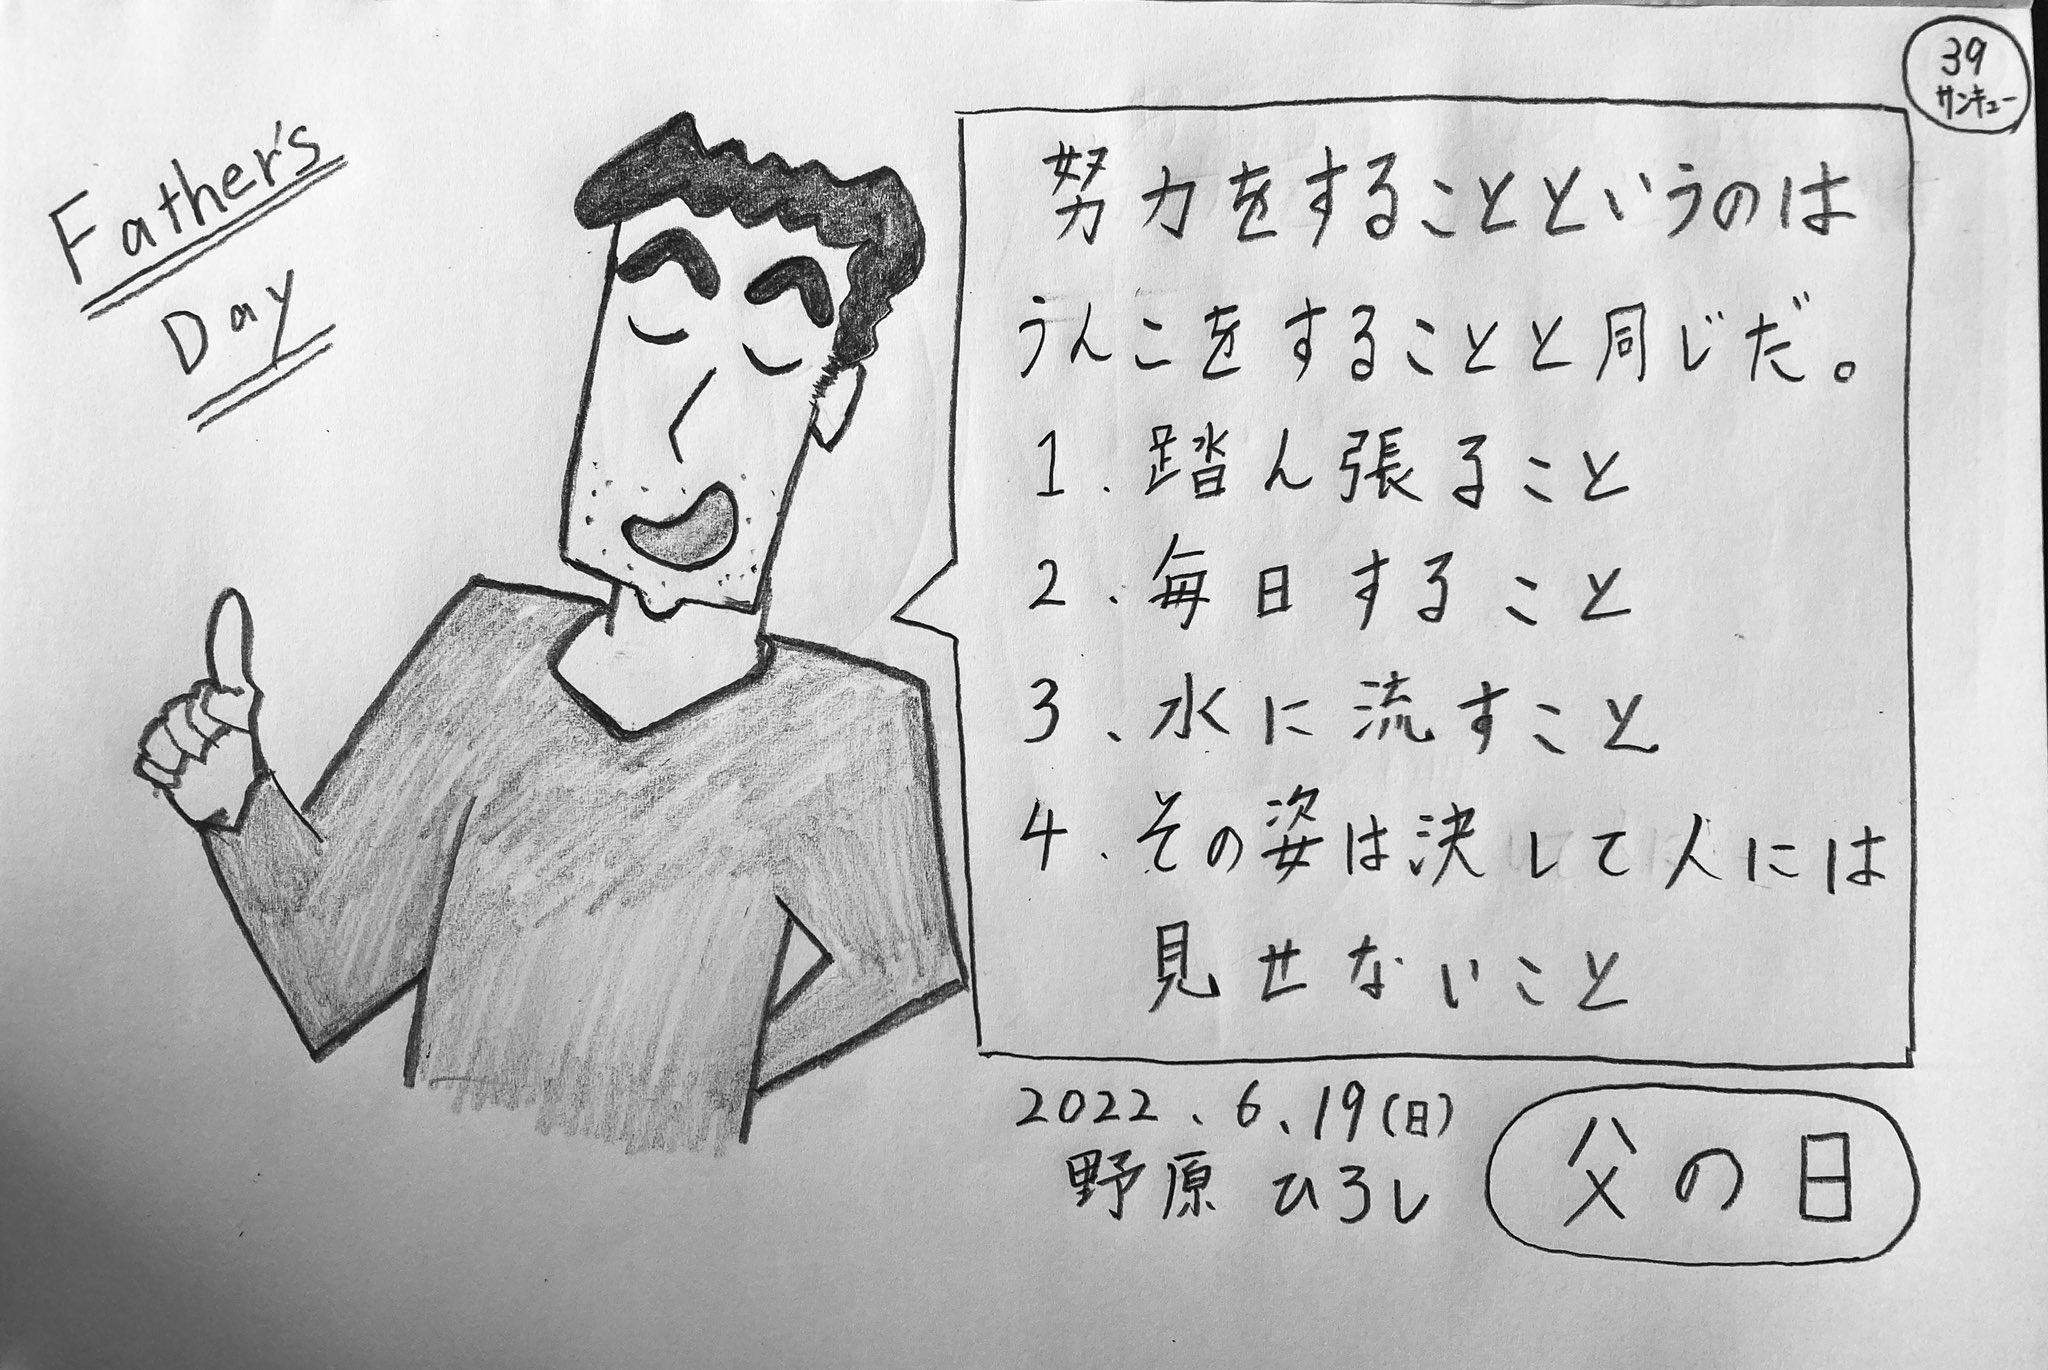 Father's
Day
39
サンキュー
努力をすることというのは
うんこをすることと同じだ。
1. 踏ん張ること
2. 毎日すること
3、水に流すこと
4. その姿は決して人には
見せないこと
2022.6.19(日)
野原 ひろし
父の日